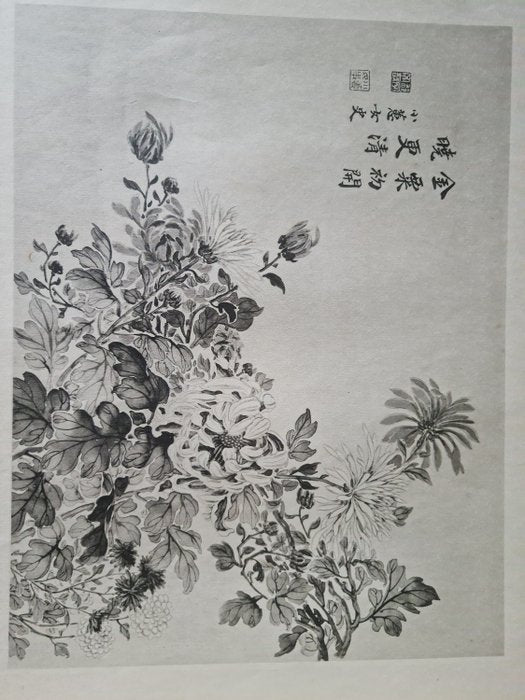 金粟初開
曉更清
小蕙女史